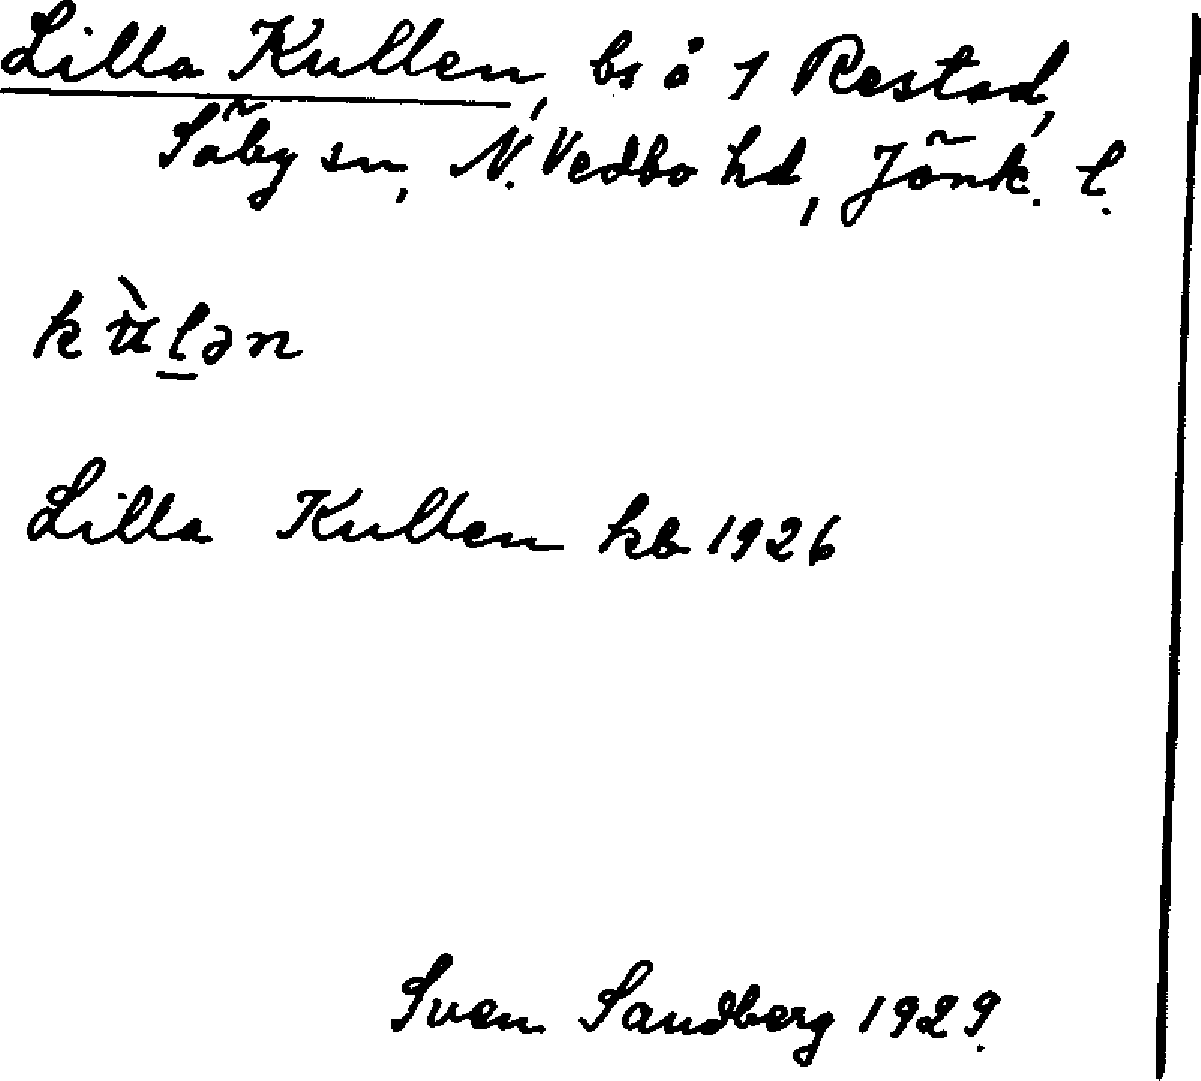 Lilla Kullen, bs å 1 Restad,
Säby sn, N. Vedbo hd, Jönk. l.
kùl̲ən
Lilla Kullen kb 1926
Sven Sandberg 1929.